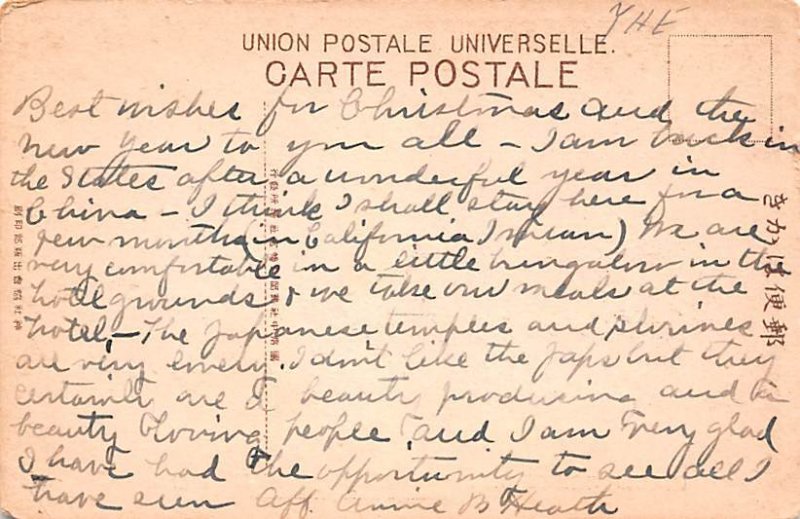 THE
UNION POSTALE UNIVERSELLE.
CARTE POSTALE
Best wishes for Christmas and the
New Year to you all - I am back in
the States after a wonderful year in
China - I think I shall stay here for a
few months (in California I mean) We are
very comfortable in a little bungalow in the
hotel grounds & we take our meals at the
hotel, - The Japanese temples and shrines
are very lovely. I don't like the Japs but they
certainly are a beauty producing and
beauty loving people, and I am very glad
I have had the opportunity to see all I
have seen Aff. Annie B Heath
きかは便郵